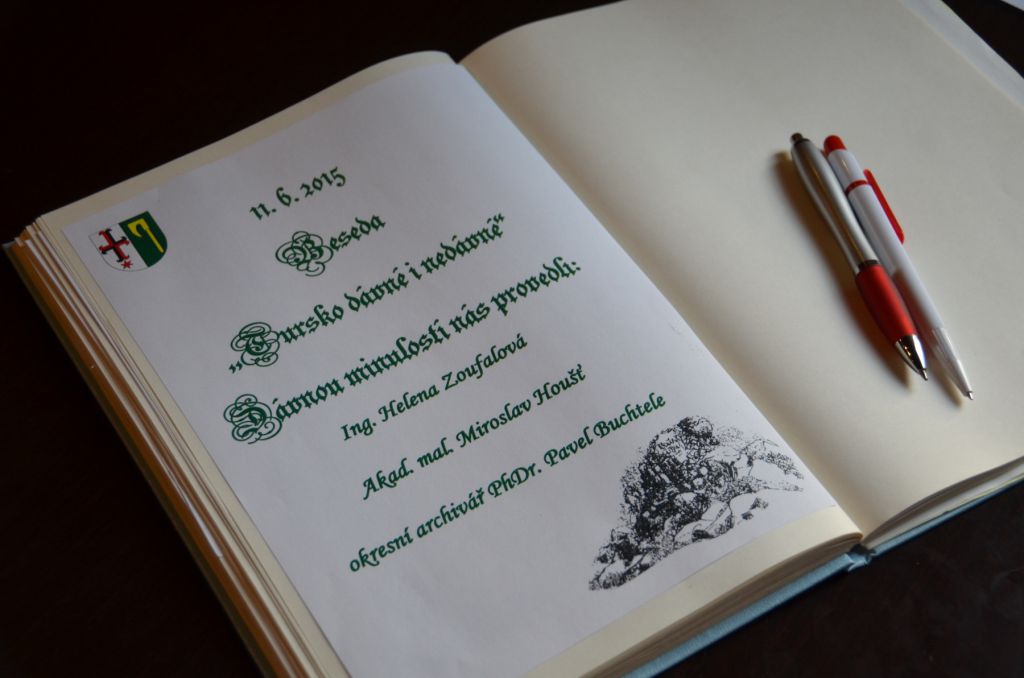 11. 6. 2015
Beseda
„Tursko dávné i nedávné“
Dávnou minulostí nás provedli:
Ing. Helena Zoufalová
Akad. mal. Miroslav Houšť
okresní archivář PhDr. Pavel Buchtele